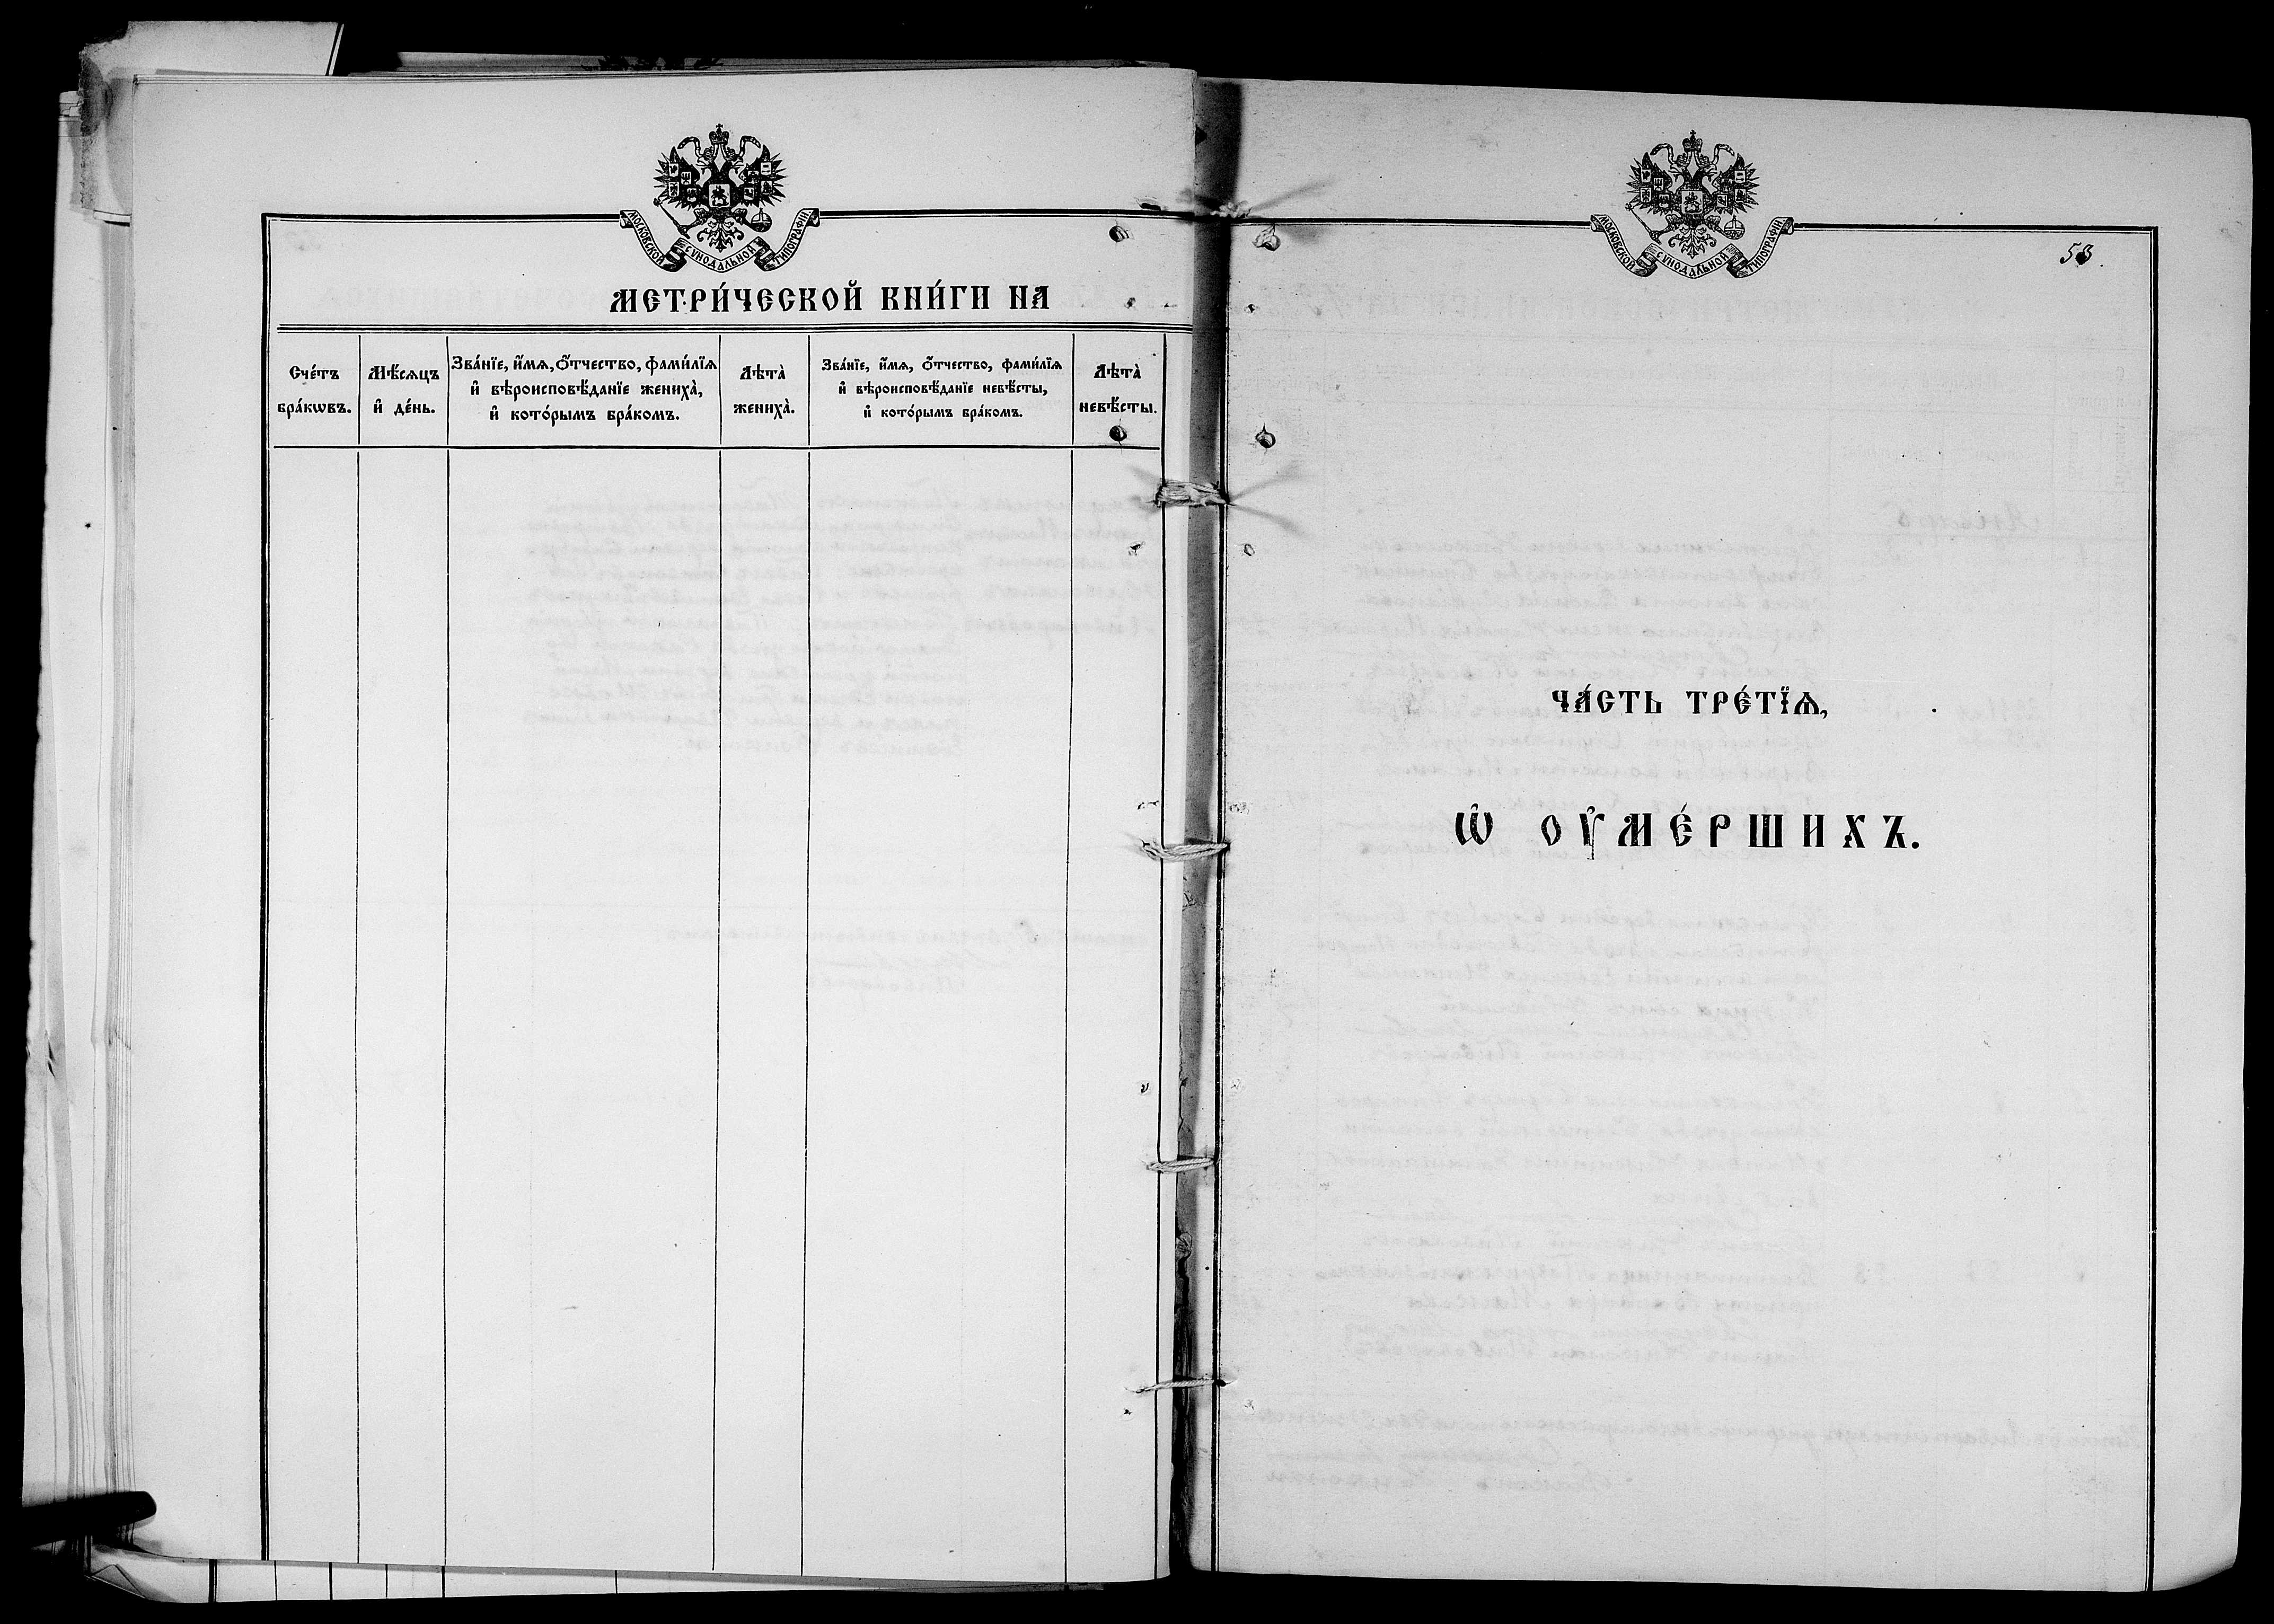 МОСКОВСКОЙ СѴНОДАЛЬНОЙ ТИПОГРАФІИ
МЕТРИ́ЧЕСКОЙ КНИ́ГИ НА
Сче́тъ бра́кѡвъ.
Мѣ́сѧцъ и҆ де́нь.
Зва́нїе, и҆́мѧ, ѻ҆́тчество, фами́лїѧ
и҆ вѣроисповѣ́данїе жениха̀,
и҆ кото́рымъ бра́комъ.
Лѣта̀ жениха̀.
Зва́нїе, и҆́мѧ, ѻ҆́тчество, фами́лїѧ
и҆ вѣроисповѣ́данїе невѣ́сты,
и҆ кото́рымъ бра́комъ.
Лѣта̀ невѣ́сты.
МОСКОВСКОЙ СѴНОДАЛЬНОЙ ТИПОГРАФІИ
53.
ЧА́СТЬ ТРЕ́ТЇѦ,
Ѡ҆ ОУ҆МЕ́РШИХЪ.